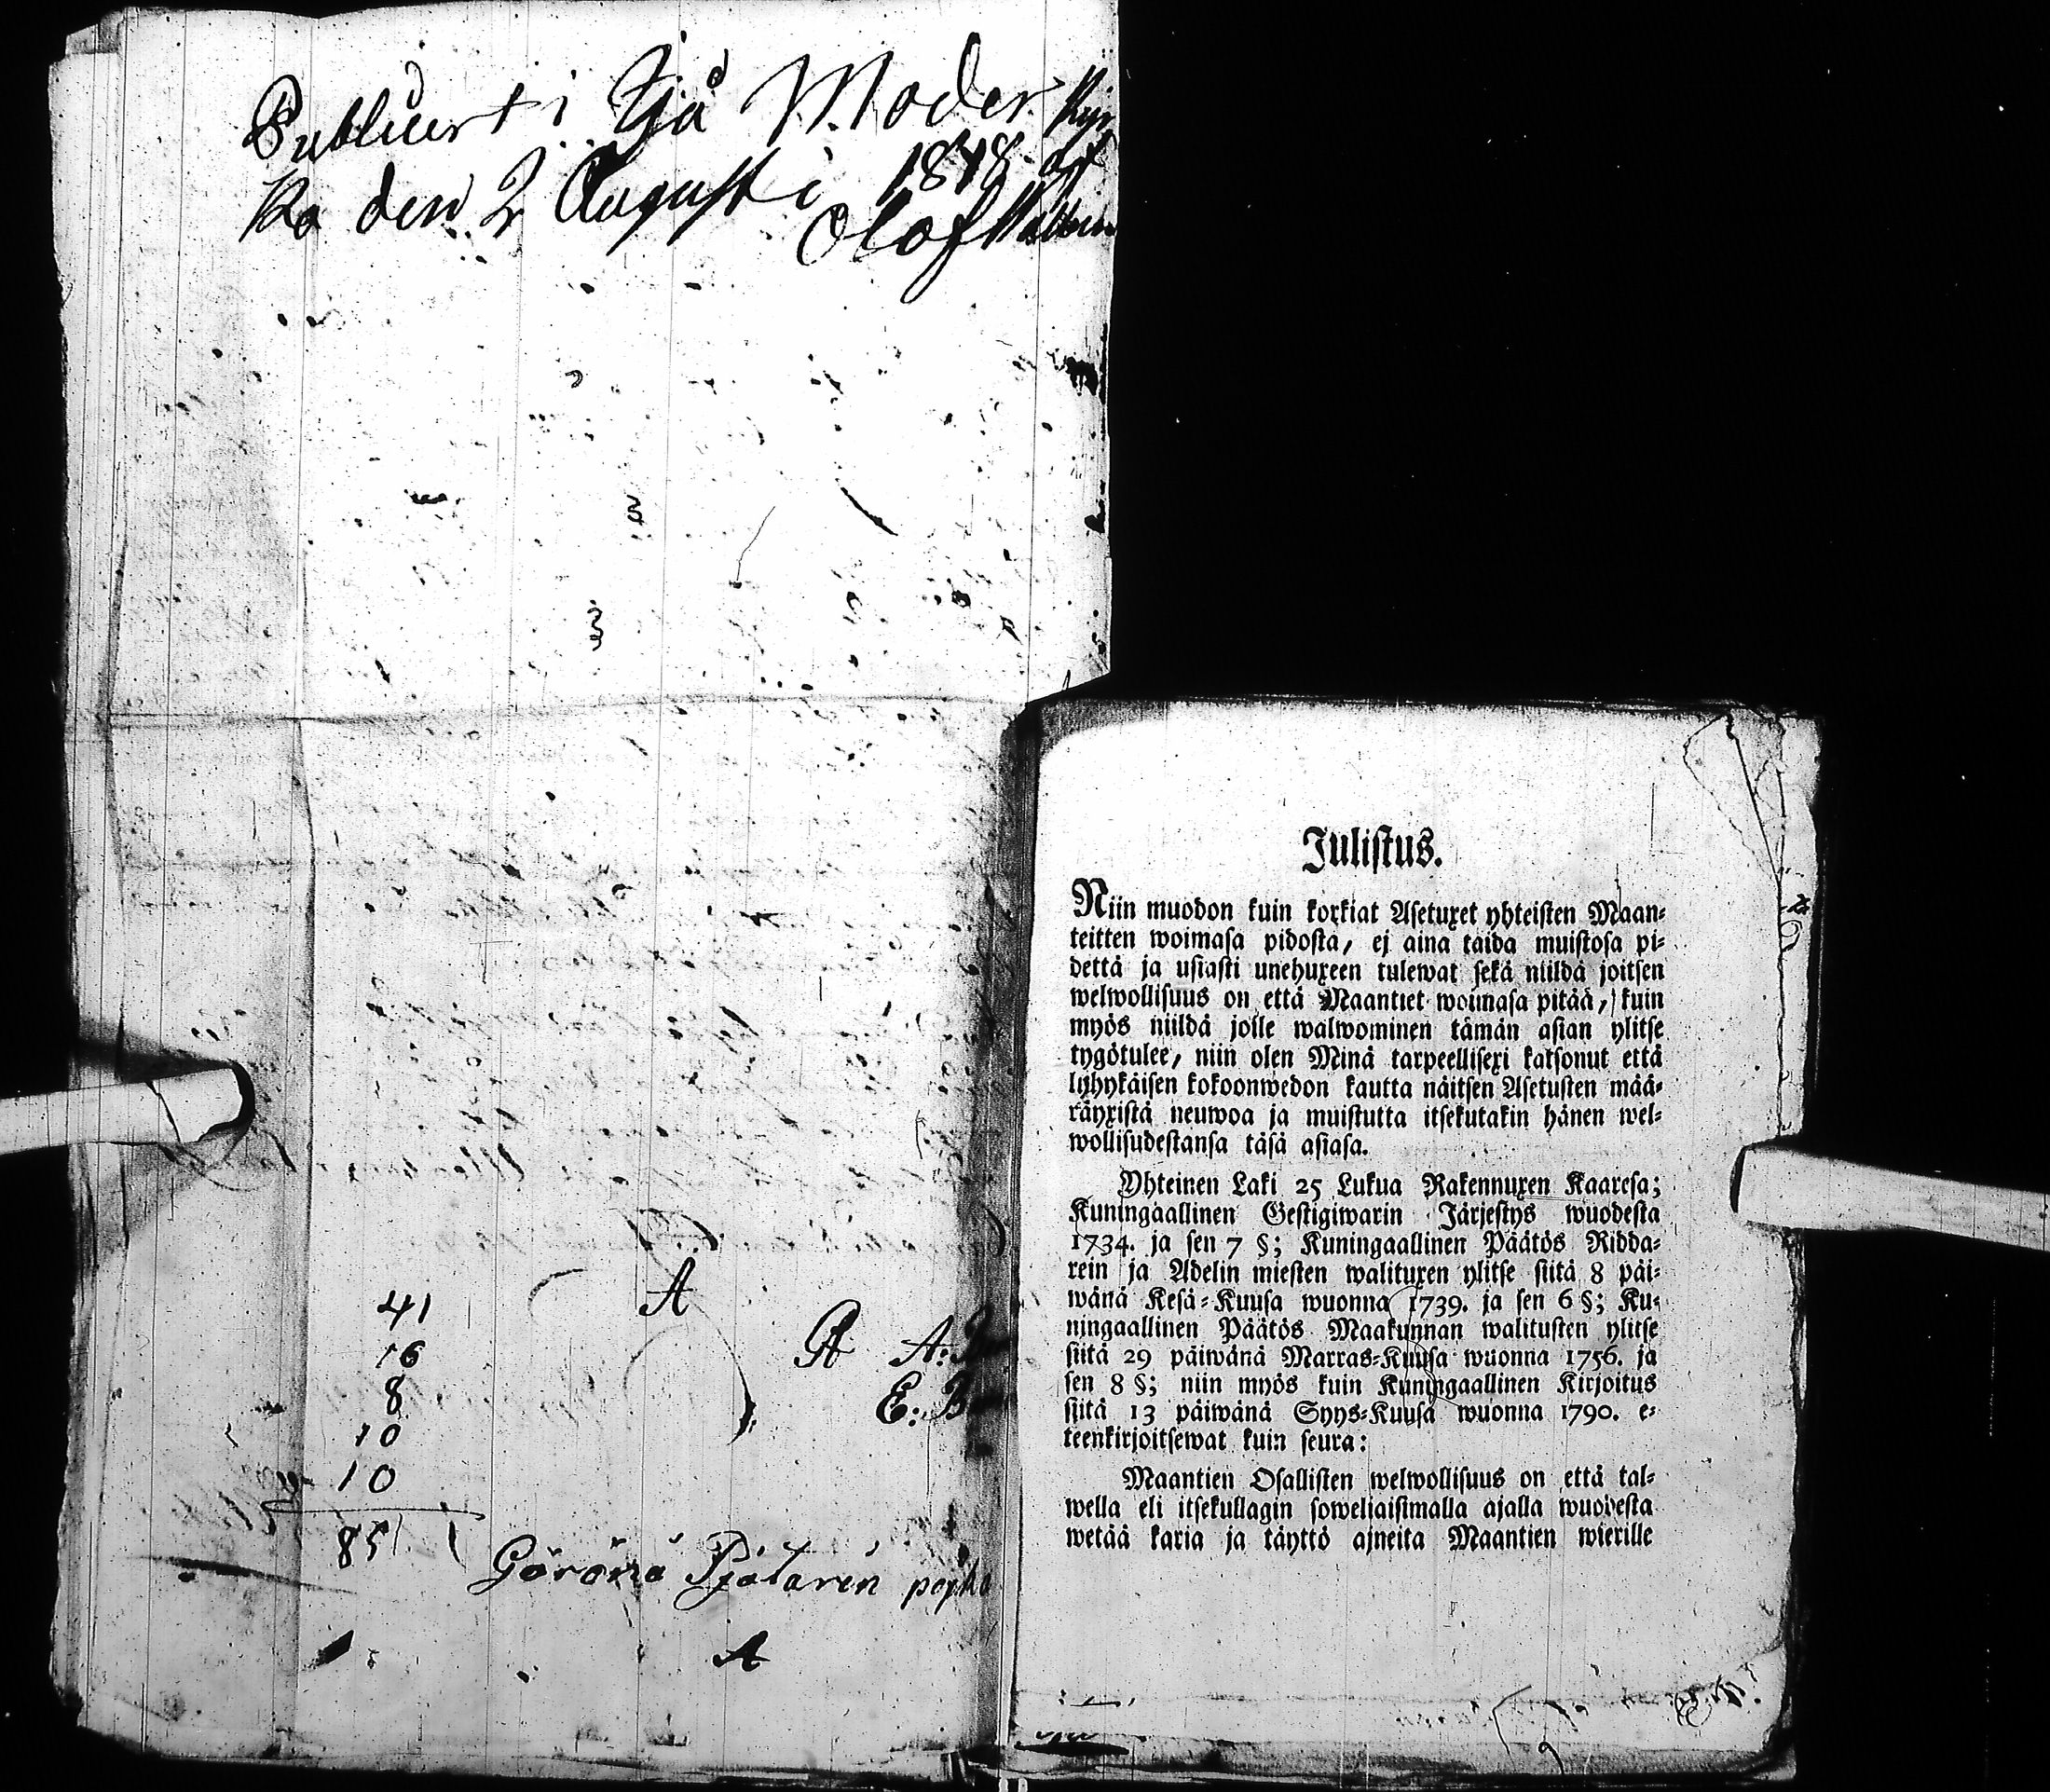 Publicert i Ijå Moder Kyr
ka den 2 Augusti 1848 af
Olof
41
16
8
10
10
85
A
A
A:
E: B
Görönä Pjätarén pojka
A
Julistus.
Niin muodon kuin korkiat Asetuxet yhteisten Maan-
teitten woimasa pidosta, ej aina taida muistosa pi-
dettä ja usiasti unehuxeen tulewat sekä niildä joitsen
welwollisuus on että Maantiet woimasa pitää, kuin
myös niildä joille walwominen tämän asian ylitse
tygötulee, niin olen Minä tarpeellisexi katsonut että
lyhykäisen kokoonwedon kautta näitsen Asetusten mää-
räyxistä neuwoa ja muistutta itsekutakin hänen wel-
wollisudestansa täsä asiasa.
Yhteinen Laki 25 Lukua Rakennuxen Kaaresa;
Kuningaallinen Gestigiwarin Järjestys wuodesta
1734. ja sen 7 §; Kuningaallinen Päätös Ridda-
rein ja Adelin miesten walituxen ylitse siitä 8 päi-
wänä Kesä-Kuusa wuonna 1739. ja sen 6 §; Ku-
ningaallinen Päätös Maakunnan walitusten ylitse
siitä 29 päiwänä Marras-Kuusa wuonna 1756. ja
sen 8 §; niin myös kuin Kuningaallinen Kirjoitus
siitä 13 päiwänä Syys-Kuusa wuonna 1790. e-
teenkirjoitsewat kuin seura:
Maantien Osallisten welwollisuus on että tal-
wella eli itsekullagin soweliaisimalla ajalla wuodesta
wetää karia ja täyttö ajneita Maantien wierille